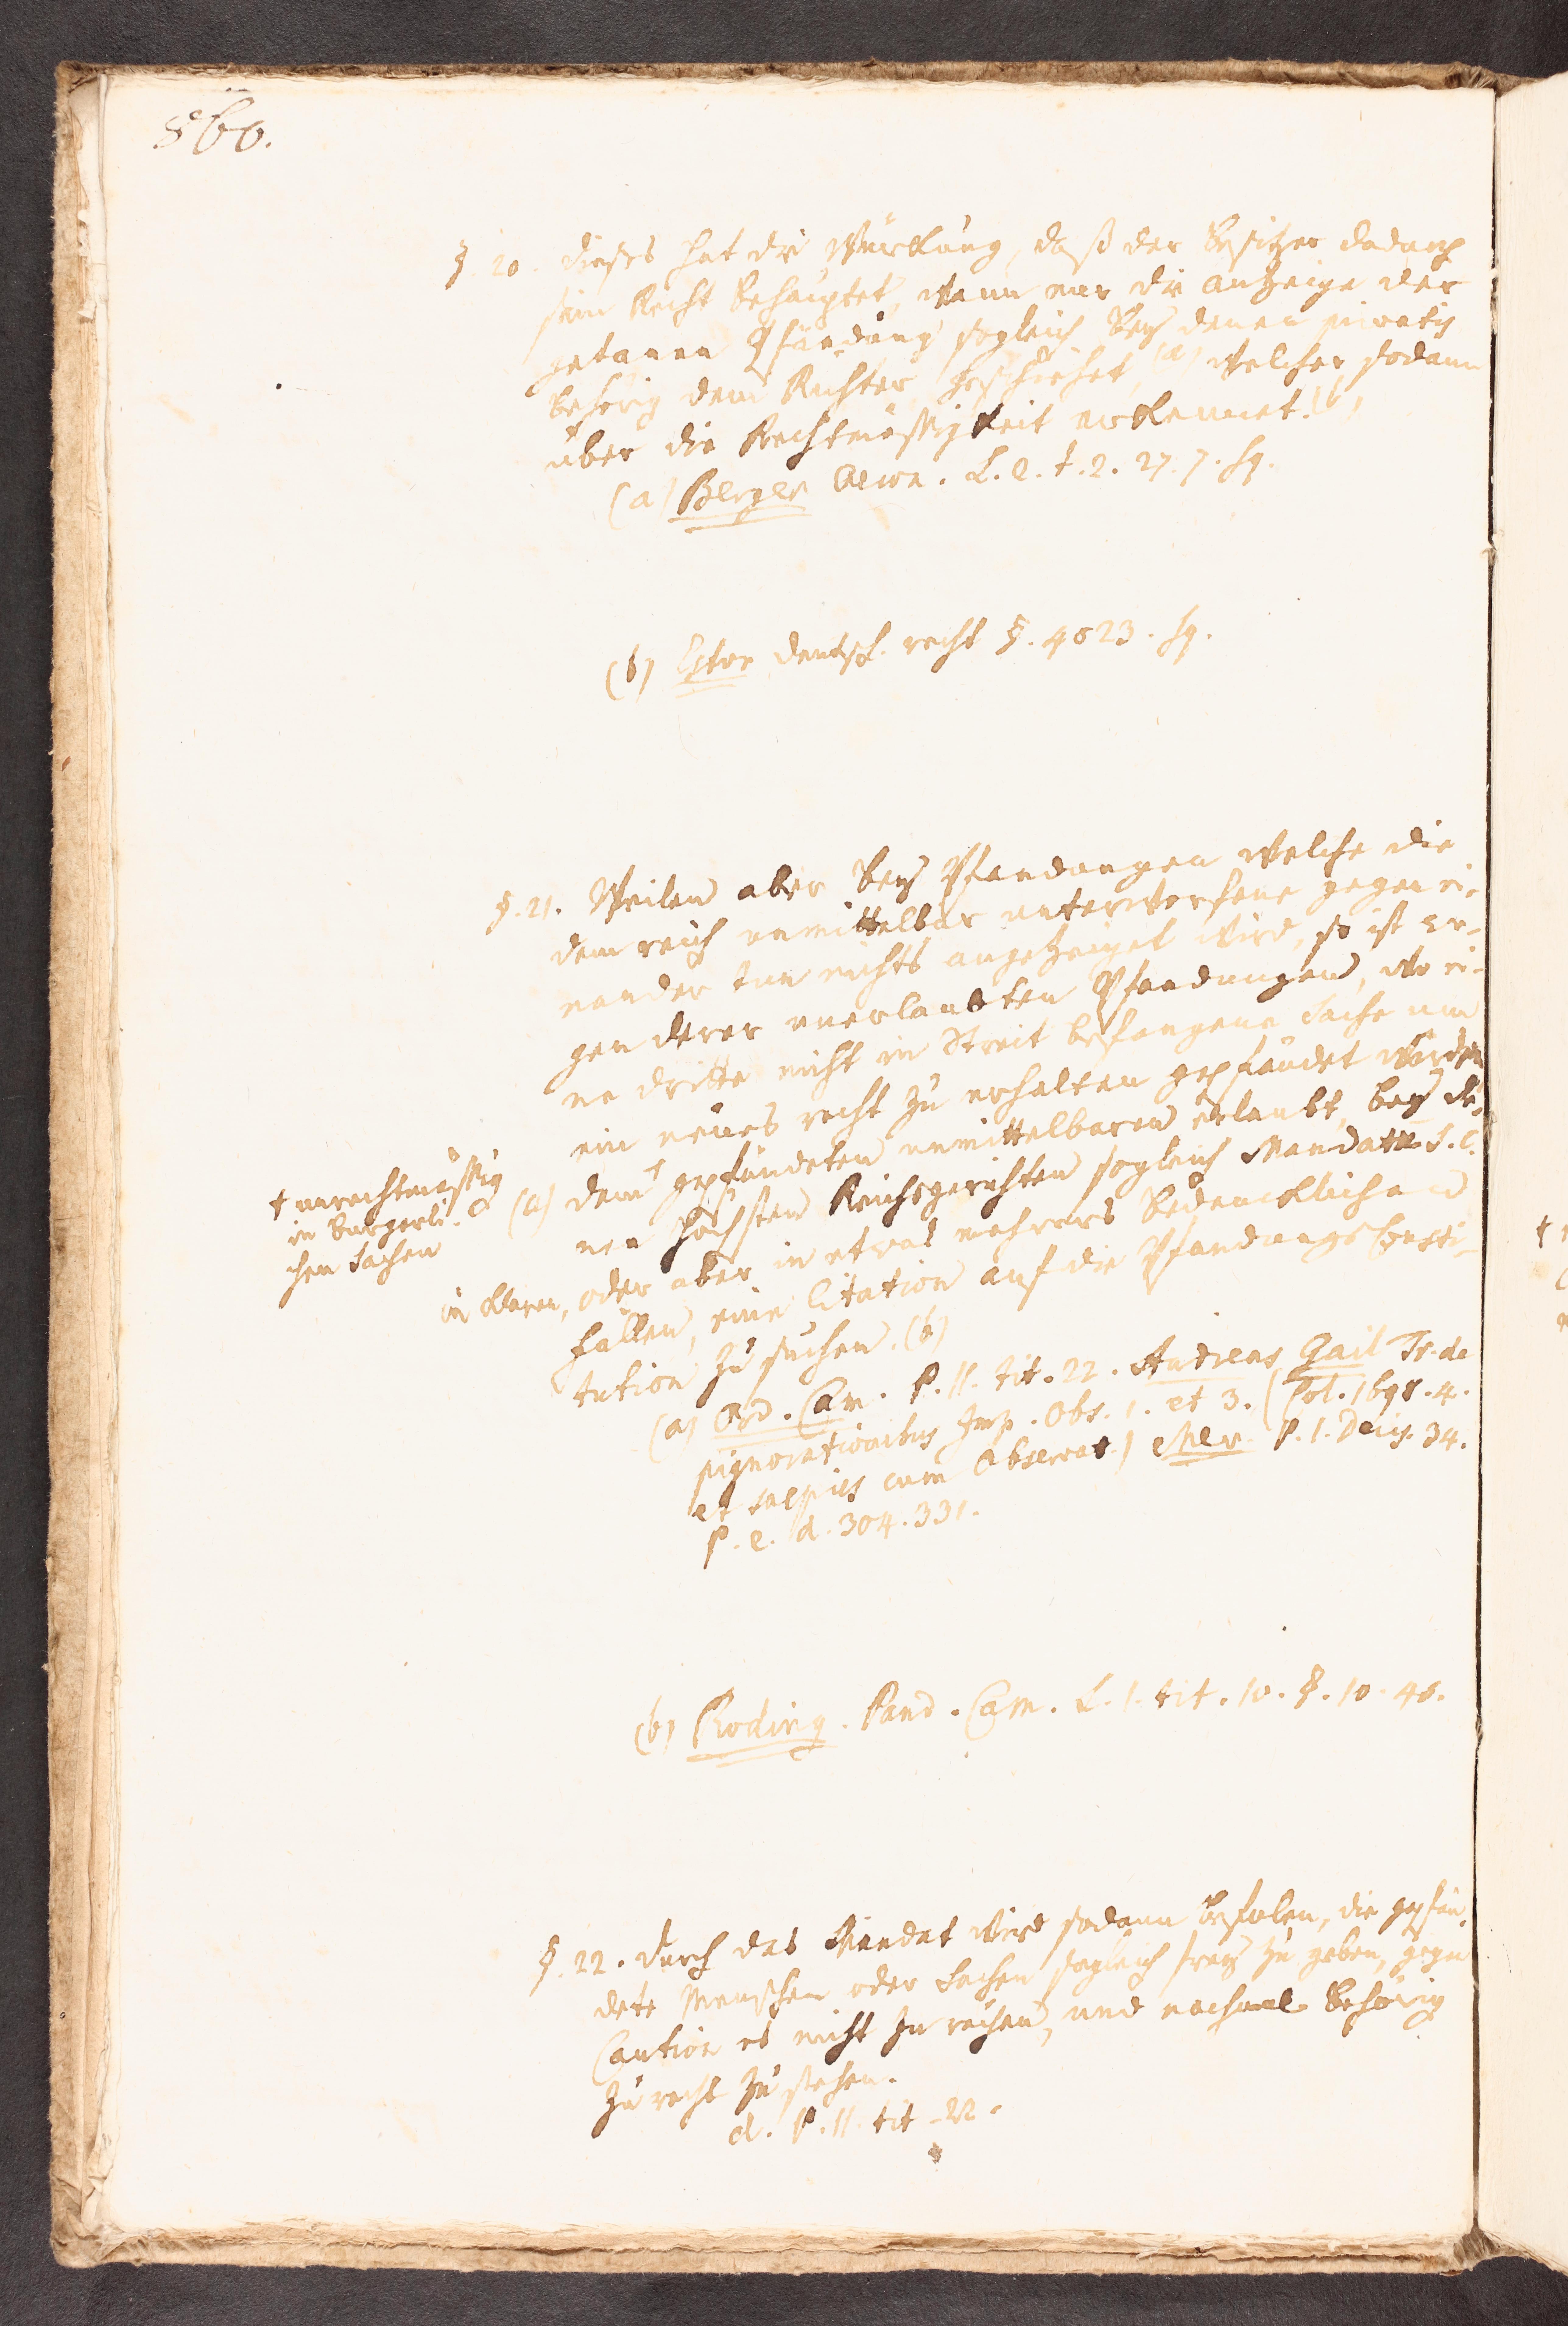 860.
§. 20. dieses hat die Würckung, daß der Besitzer dadurch
sein Recht behauptet, wann nur die anzeige der
getanen Pfändung sogleich bey denen privatis
behörig dem Richter geschiehet, (a) welcher sodann
über die Rechtmäßigkeit erkennet. (b)
(a) Berger Oecon. L. 2. t. 2. 27. 7. sq.
(b) Estor deutsch. recht §. 4023. sq.
§. 21. Weilen aber bey Pfandungen welche die
dem reich unmittelbar unterworfene gegen ei-
nander tun nichts angezeiget wird, so ist we-
gen derer unerlaubten Pfandungen, wo ei-
ne dritte nicht in Streit befangene Sache um
ein neues recht zu erhalten gepfändet worden
(a) dem † gepfändeten unmittelbaren erlaubt, bey de-
nen höchsten Reichsgerichten sogleich Mandata S. C.
in klaren, oder aber in etwas mehrers bedencklichen
fällen, eine Citation auf die Pfandungs Consti-
tution zu suchen. (b)
† unrechtmäßig
in bürgerli-
chen Sachen
(a) Ord. Cam. P. II. tit. 22. Andreas Gail Tr. de
pignorationibus Imp. Obs. 1. et 3. (Col. 1698. 4.
et saepius cum Observat.) Mev. P. 1. Decis. 34.
P. 2. d. 304. 331.
(b) Roding. Pand. Cam. L. 1. tit. 10. §. 10. 40.
§. 22. durch das Mandat wird sodann befolen, die gepfän-
dete Menschen oder Sachen sogleich frey zu geben, gegen
Caution es nicht zu rächen, und nachmal behörig
zu recht zu stehen.
d. P. II. tit. 22.